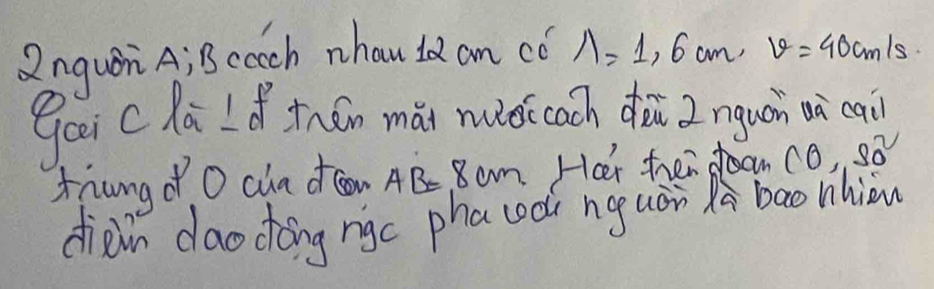 2 nguồn A; B cách nhau 12 cm có λ = 1,6 cm, v = 40cm/s.
Gọi C là 1 đ trên mặt nước cách đều 2 nguồn và cách
trung đ O của đoạn AB = 8 cm. Hỏi trên đoạn CO, số
điểm dao động ngc pha với nguồn là bao nhiêu